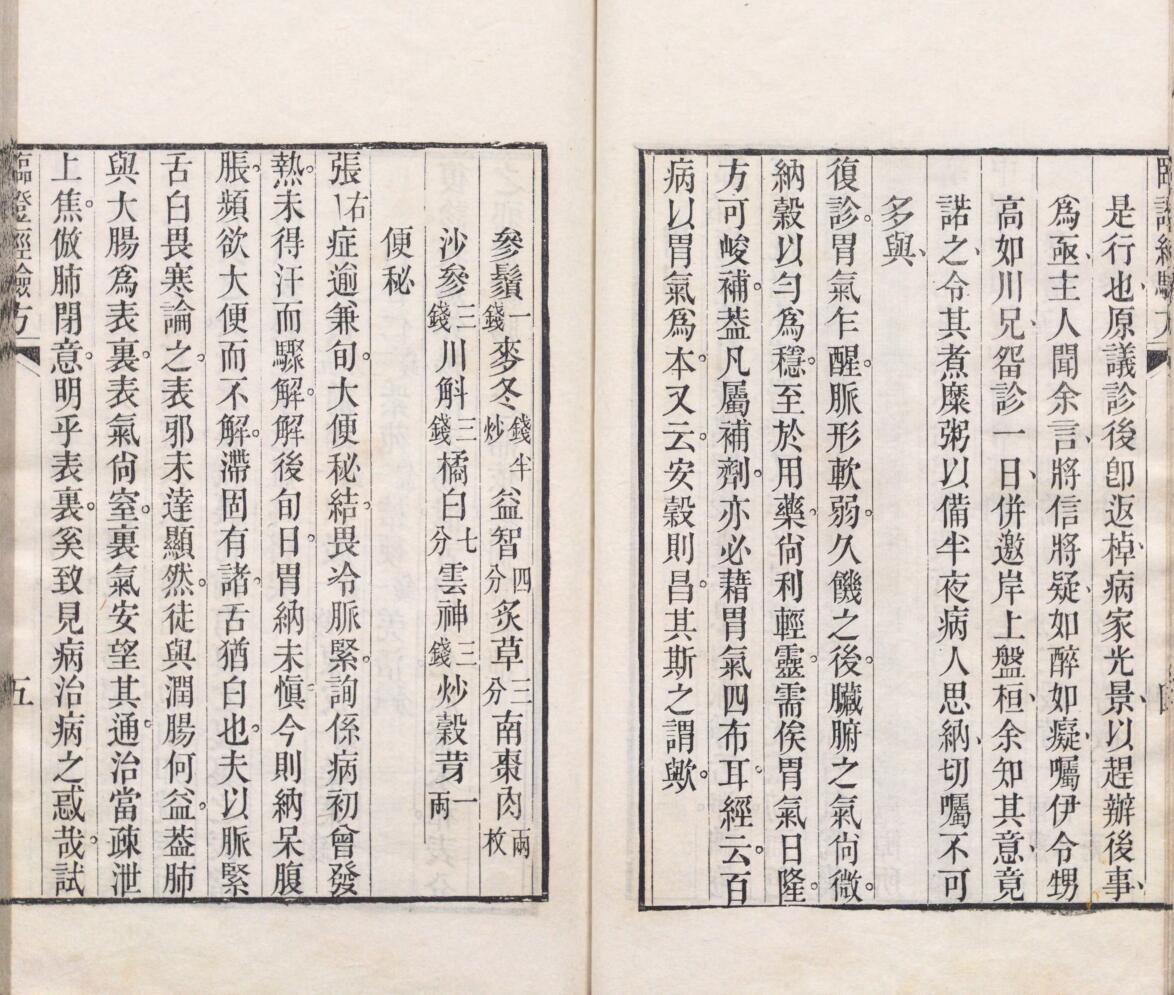 是行也原議診後卽返棹病家光景以趕辦後事
爲亟主人聞余言將信將疑如醉如癡囑伊令甥
高如川兄畱診一日併邀岸上盤桓余知其意竟
諾之令其煮糜粥以備半夜病人思納切囑不可
多與
復診胃氣乍醒脈形軟弱久饑之後臟腑之氣尙微
納穀以勻爲穩至於用藥尙利輕靈需俟胃氣日隆
方可峻補葢凡屬補劑亦必藉胃氣四布耳經云百
病以胃氣爲本又云安穀則昌其斯之謂歟
參鬚一錢麥冬錢半炒益智四分炙草三分南棗肉兩枚
沙參三錢川斛三錢橘白七分雲神三錢炒穀芽一兩
便秘
張右症逾兼旬大便秘結畏冷脈緊詢係病初曾發
熱未得汗而驟解解後旬日胃納未愼今則納呆腹
脹頻欲大便而不解滯固有諸舌猶白也夫以脈緊
舌白畏寒論之表邪未達顯然徒與潤腸何益葢肺
與大腸爲表裏表氣尙窒裏氣安望其通治當疎泄
上焦倣肺閉意明乎表裏奚致見病治病之惑哉試
臨證經驗方
五